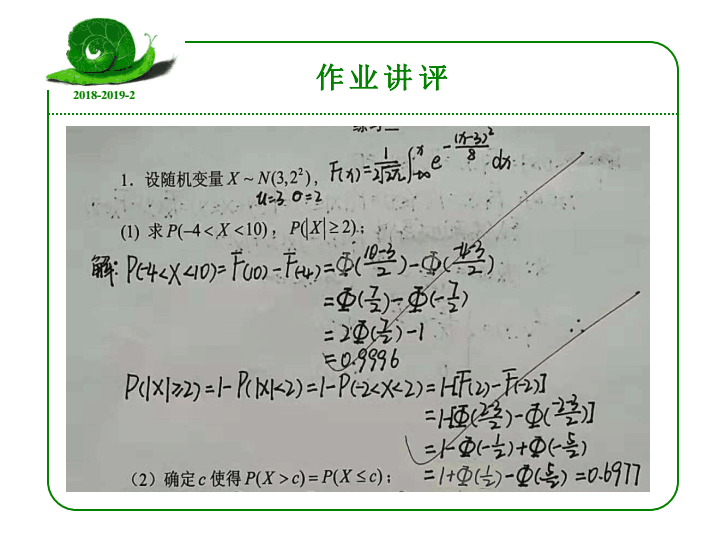 2018-2019-2
作业讲评
1. 设随机变量 X ~ N(3,2²), F(x)=\frac{1}{2\sqrt{2π}}∫_{-∞}^{x} e^{-\frac{(x-3)²}{8}} dx
u=3 σ=2
(1) 求 P(-4 < X < 10), P(|X| ≥ 2).;
解: P(-4<X<10)=F(10)-F(-4)=Φ(\frac{10-3}{2})-Φ(\frac{-4-3}{2})
=Φ(\frac{7}{2})-Φ(-\frac{7}{2})
=2Φ(\frac{7}{2})-1
=0.9996
P(|X|≥2)=1-P(|X|<2)=1-P(-2<X<2)=1-[F(2)-F(-2)]
=1-[Φ(\frac{2-3}{2})-Φ(\frac{-2-3}{2})]
=1-Φ(-\frac{1}{2})+Φ(-\frac{5}{2})
(2) 确定 c 使得 P(X > c) = P(X ≤ c);
=1+Φ(\frac{1}{2})-Φ(\frac{5}{2})=0.6977